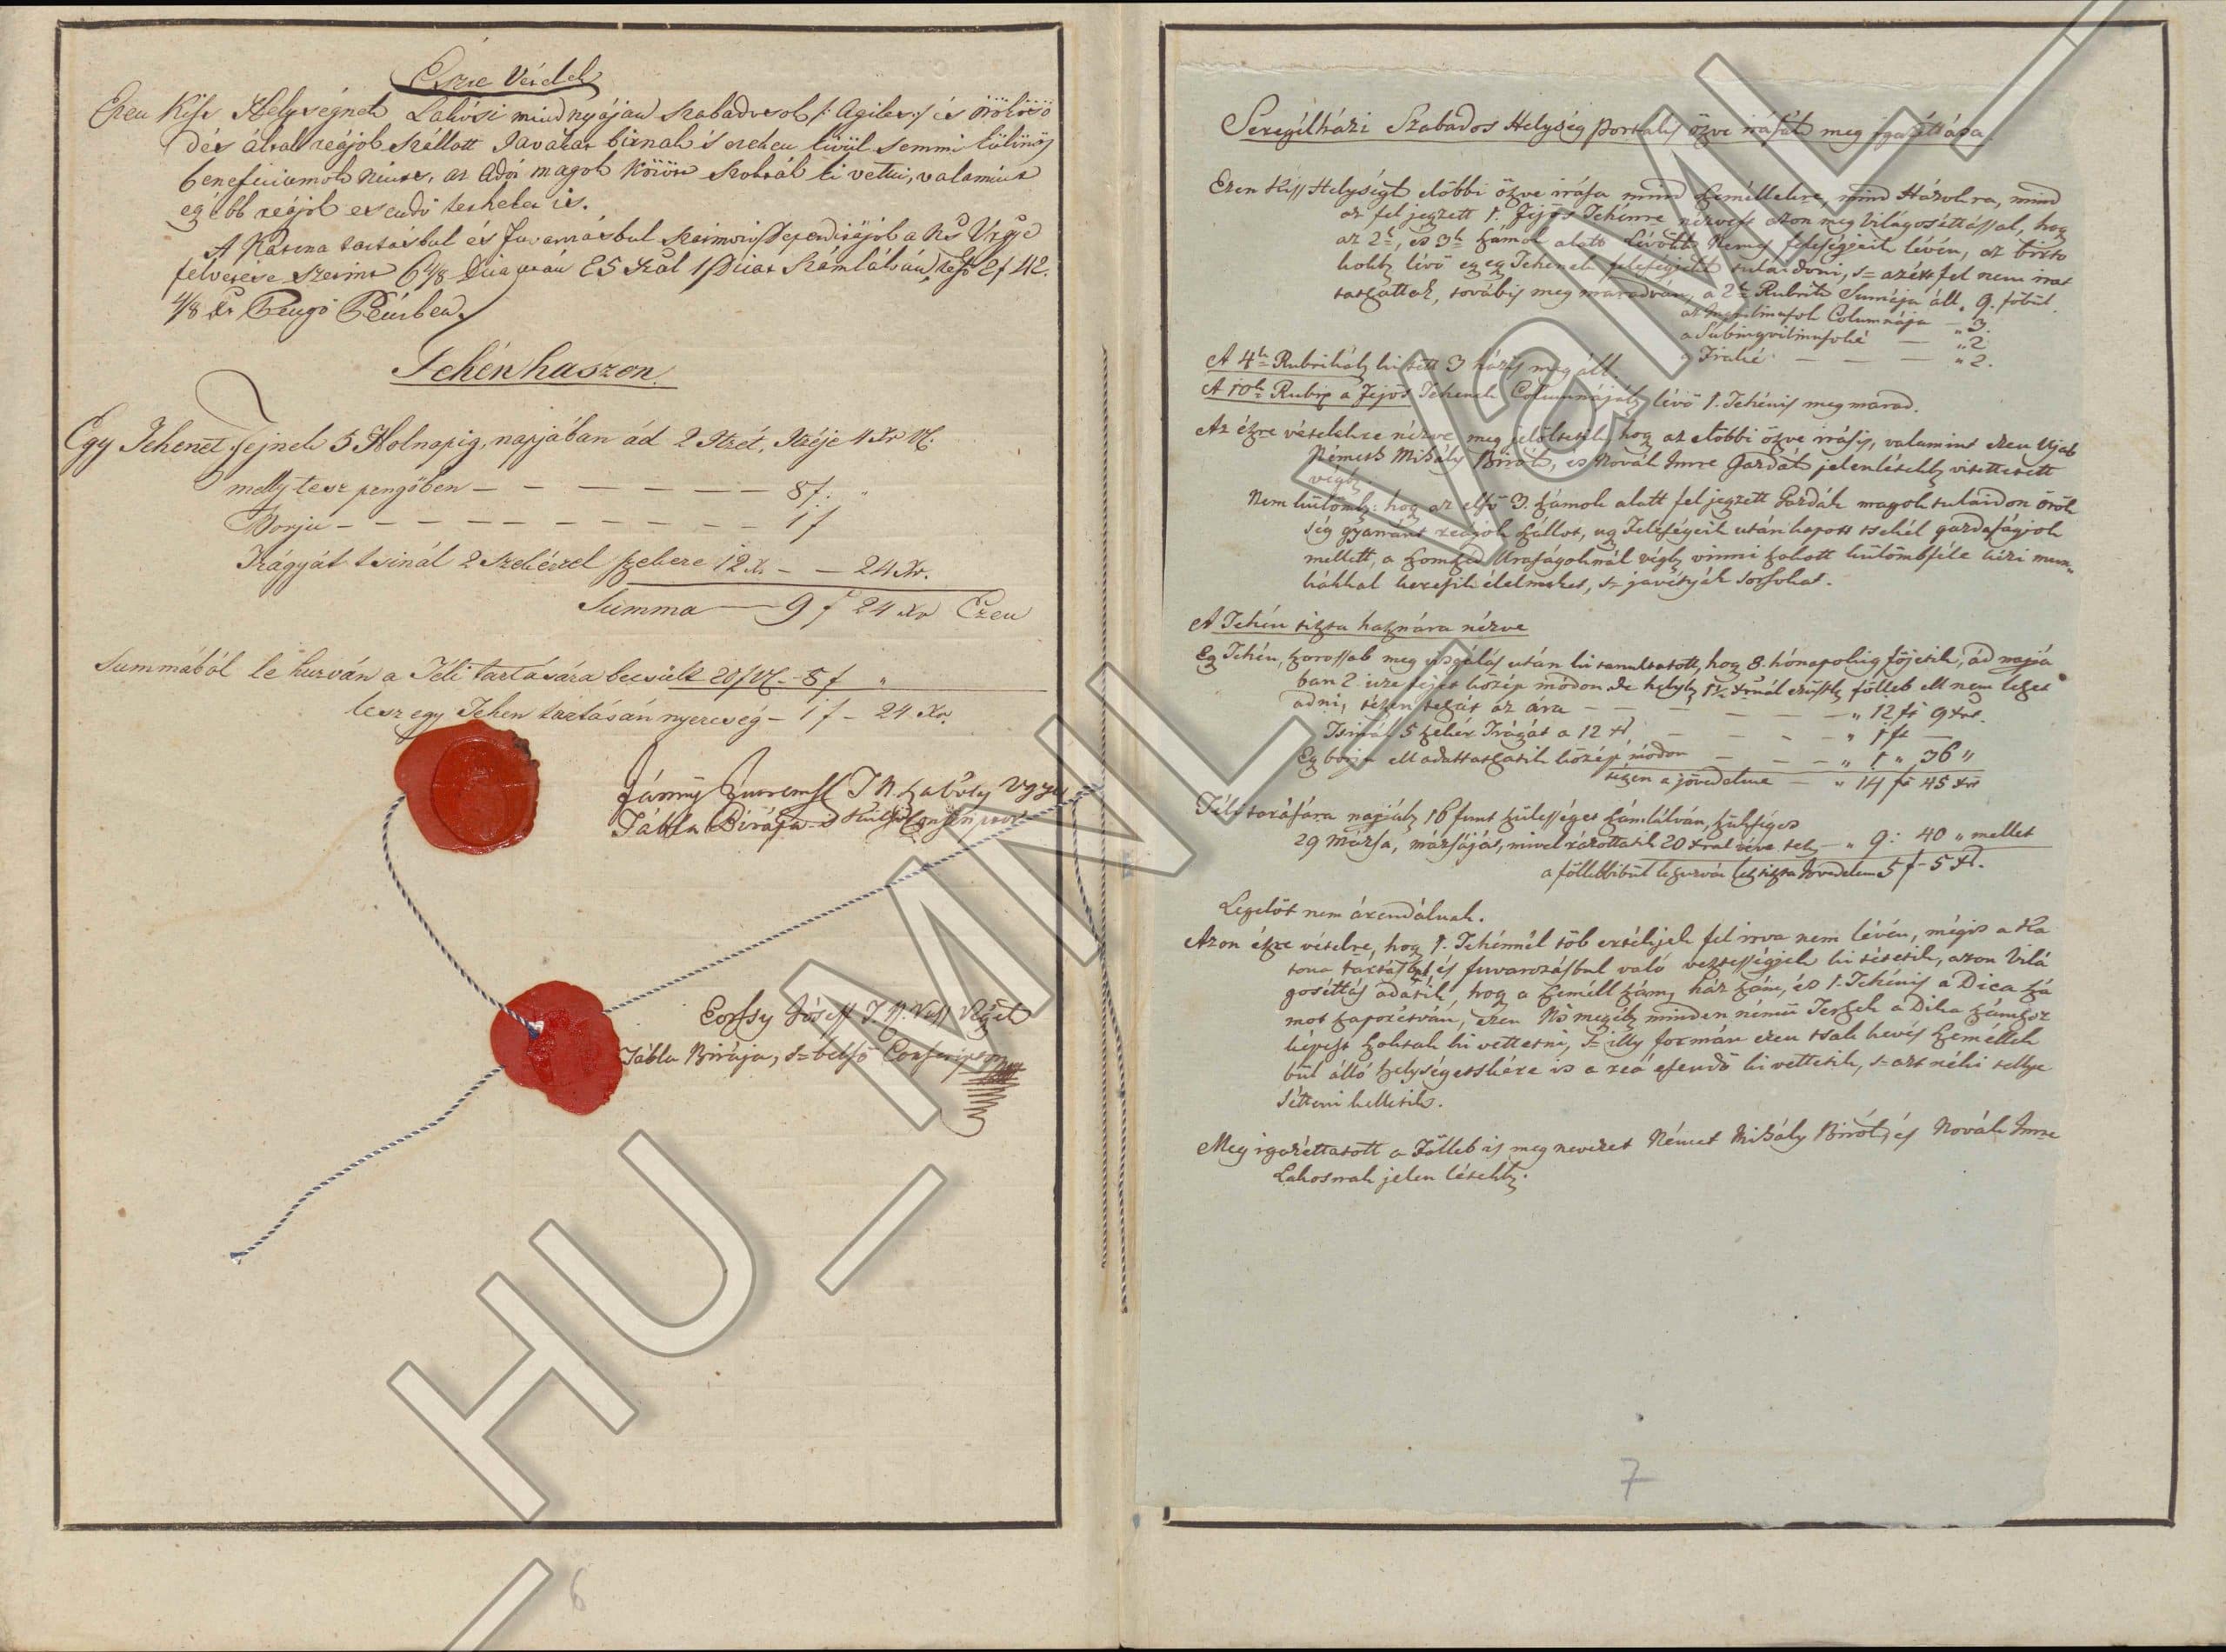 Észre Vételek
Ezen Kiss Helységnek Lakosi mindnyájan szabadosok /: Agilesek :/ és örökösö
dés által reájok szállott Javakat birnak és ezeken kivül semmi különös
beneficiumok nincs, az Adót magok között szokták ki vettni, valamint
egyébb reájok esendő terheket is.
A Katona tartásbul és fuvarozásbul származó Deperditájok a Ns Vrgye
felvetése szerint 6 4/8 Dica után 25 Xrál 1 Dicat Számlálván, teszen 2 f 42.
4/8 Xr Pengő Pénzben.
Tehén haszon.
Egy Tehenet fejnek 5 Holnapig, napjában ád 2 Itzét, Itzéje 4 Xr Vt.
melly tesz pengőben — — — — — — — 8 f. "
Borju — — — — — — — — — — 1 f
Trágyát tsinál 2 szekérrel szekere 12 Xr — — 24 Xr.
Summa — 9 f 24 Xr Ezen
Summából le huzván a Téli tartására becsült 20 f Vt. — 8 f "
lesz egy Tehen tartásán nyereség — 1 f — 24 Xr.
T N Szaboltsy Vgye
Tábla Birája s Külső Conscriptor
József T. N. Vass Vgyei
Tábla Birája, s = belső Conscriptor
6
Seregélházi Szabados Helység Portalis özve irását meg igazittása
Ezen Kiss Helységk előbbi özve irása mind Személlekre, mind Házokra, mind
az fel jegzett 1. Fejős Tehénre nézvést azon meg Világoséttással, hogy
az 2k, és 3k számok alatt Lévőknek Nemes feleségeik lévén, az birto
kokb lévő egy egy Tehenek feleségeik tulaidoni, s = azért fel nem irat
tatzattak, továbis meg maradván, a 2k Rubrik Sumája áll " 9. főbül.
az Inquilinusok Columnája — " 3.
a Subinquilinusoké — " 2
a Fiaké — — — " 2.
A 4k Rubrikáb ki tett 3 házis meg áll.
A 10k Rubrik a Fejős Tehenek Columnájáb lévő 1. Tehénis meg marad.
Az észre vételekre nézve meg jelöltetik, hogy az előbbi özve irásis, valamint ezen Ujab
Németh Mihály Birók, és Novák Imre Gazdák jelenlétekb vitettetett
végb.
Nem külömb: hogy az első 3. számok alatt fel jegzett Gazdák magok tulaidon örök
ség gyanánt reájok szállot, ug Feleségeik után kapott tsekél gazdaságjok
mellett, a szomszéd Uraságoknál végb vinni szokott külömbféle kézi mun„
kákkal keresik élelmeket, s = javétják sorsokat.
A Tehén tiszta hasznára nézve
Eg Tehén, szorossab meg visgálás után ki tanultatott, hog 8. hónapokig föjetik, ád napjá
ban 2 itze tejet közép módon de helyb 1½ Xrnál ezüstb följeb ell nem lehet
adni, tészen tehát az ára — — — — — " 12 ft 9 Xrt.
Tsinál 5 szekér Trágát a 12 Xr, — — — — " 1 ft —
Eg borju ell adattatzatik közép módon — — — " 1 " 36 "
tészen a jövedelme — " 14 ft 45 Xrt
Téli tartására napjáb 16 funt szélességet számlálván, szükséges
29 Mázsa, mázsáját, mivel rázottatik 20 Xral véve tesz — " 9: 40 " mellet
a föllebbibül le huzván leg tiszta Jövedelem 5 f — 5 Xr.
Legelőt nem árendálnak.
Azon észre vételre, hog 1. Tehénnél töb értékjek fel irva nem lévén, mégis a Ka
tona tartásbul, és fuvarozásbul való veztességjek ki tétetik, azon Vilá
gosíttás adatik, hog a személl szám, ház szám, és 1. Tehénis a Dica szá
mot szaporétván, ezen Ns megyéb minden némü Terhek a Dika számhoz
képest szoktak ki vettetni, s illy formán ezen tsak kevés személlek
bül álló helységetskére is a reá esendő ki vettetik, s = azt néki tellye
sétteni kelletik.
Meg igazéttatott a Följeb is meg nevezet Német Mihály Birót, és Novák Imre
Lakosnak jelen létekb.
7
HU_MNL_VaML_